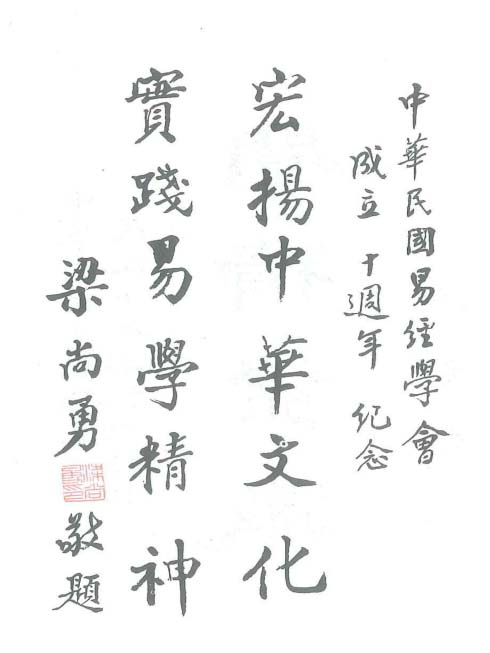 中華民國易經學會
成立十週年紀念
宏揚中華文化
實踐易學精神
梁尚勇敬題